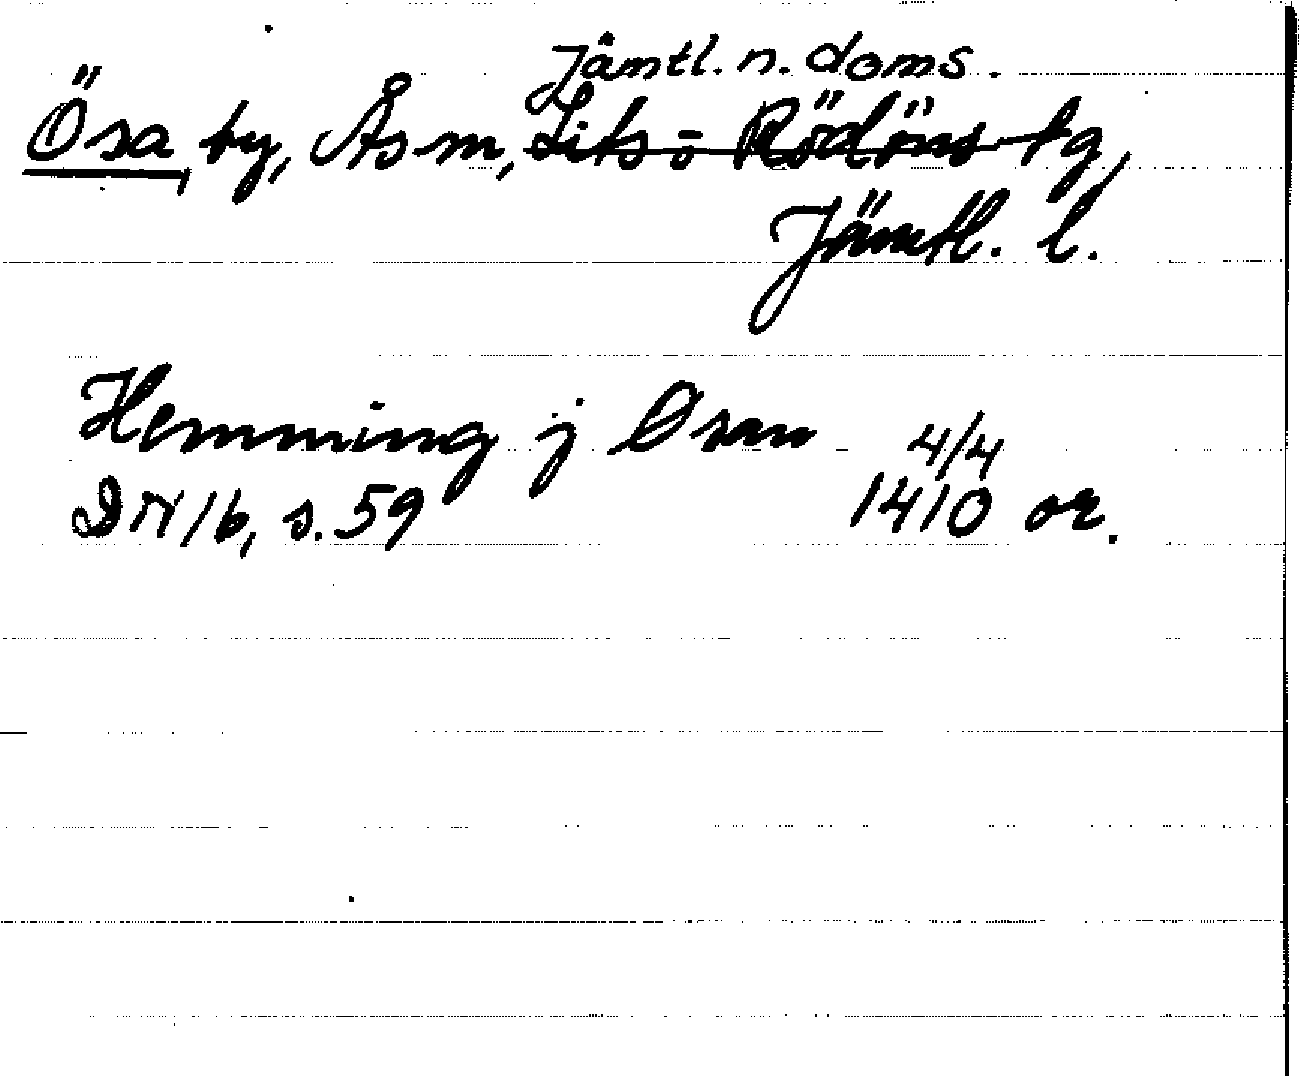 Jämtl. n. doms.
Ösa, by, Ås sn, Lits o Rödöns tg,
Jämtl. l.
Hemming j Øsan 4/4
DN 16, s. 59 1410 or.